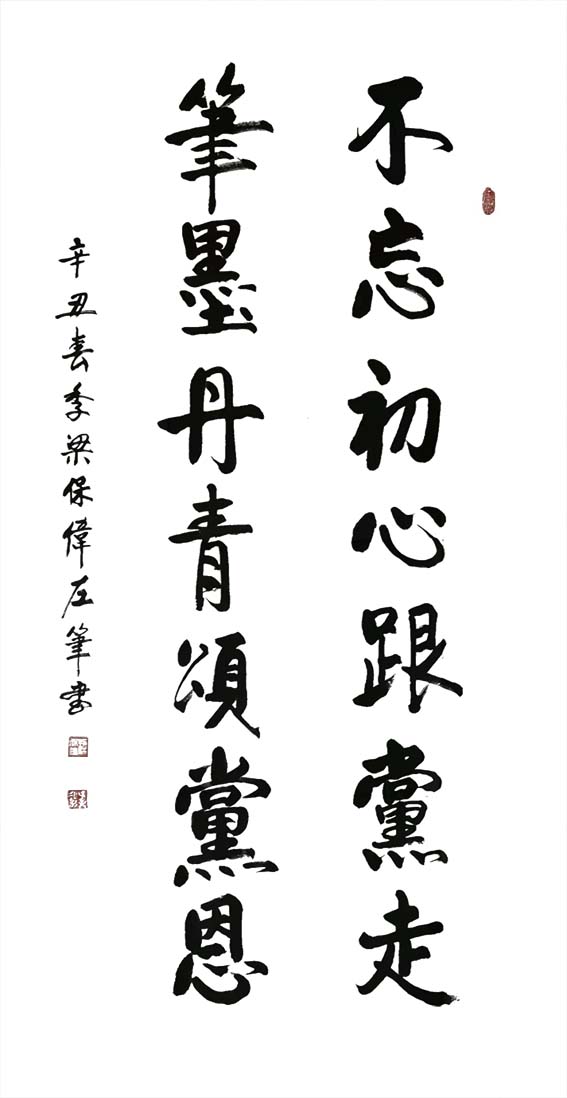 不忘初心跟黨走
筆墨丹青頌黨恩
辛丑春季梁保偉左筆書